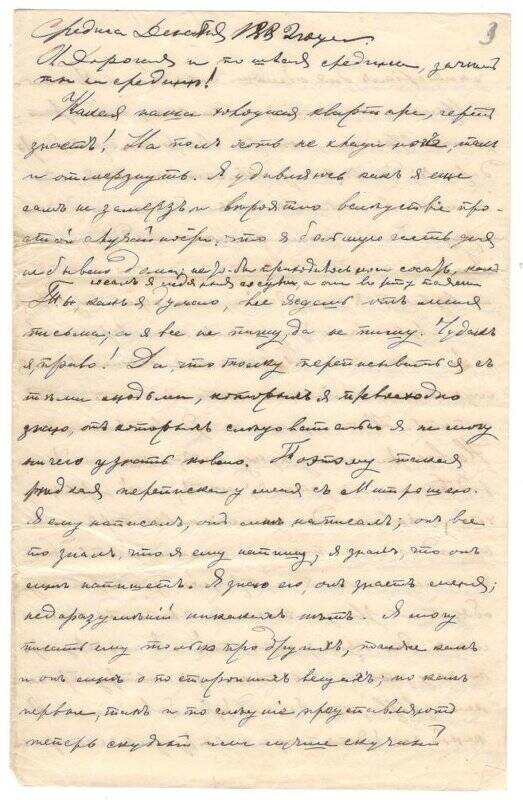 3
Средина Декабря 1882 года.
Дорогая и то твоя средина, значитъ
ты и средина!
Какая наша холодная квартира, чертъ
знаетъ! На полъ хоть не клади ноги, такъ
и отмерзнутъ. Я удивляюсь какъ я еще
самъ не замерзъ и вѣроятно вслѣдствіе про-
стой случайности, что я большую часть дня
не бываю дома,
Ты, какъ я думаю, все ждешь отъ меня
письма; а я все не пишу, да не пишу. Чудакъ
я право! Да, что толку переписываться съ
тѣми людьми, которыхъ я превосходно
знаю, отъ которыхъ слѣдовательно я не могу
ничего узнать новаго. Поэтому такая
рѣдкая переписка у меня съ Митрошею.
Я ему написалъ, онъ мнѣ написалъ; онъ все
то зналъ, что я ему напишу, я зналъ, что онъ
мнѣ напишетъ. Я знаю его, онъ знаетъ меня;
недоразумѣній никакихъ нѣтъ. Я могу
писать ему только про другихъ, также какъ
и онъ мнѣ о постороннихъ вещахъ; но какъ
первое, такъ и то представляютъ
теперь скудный или лучше скучный